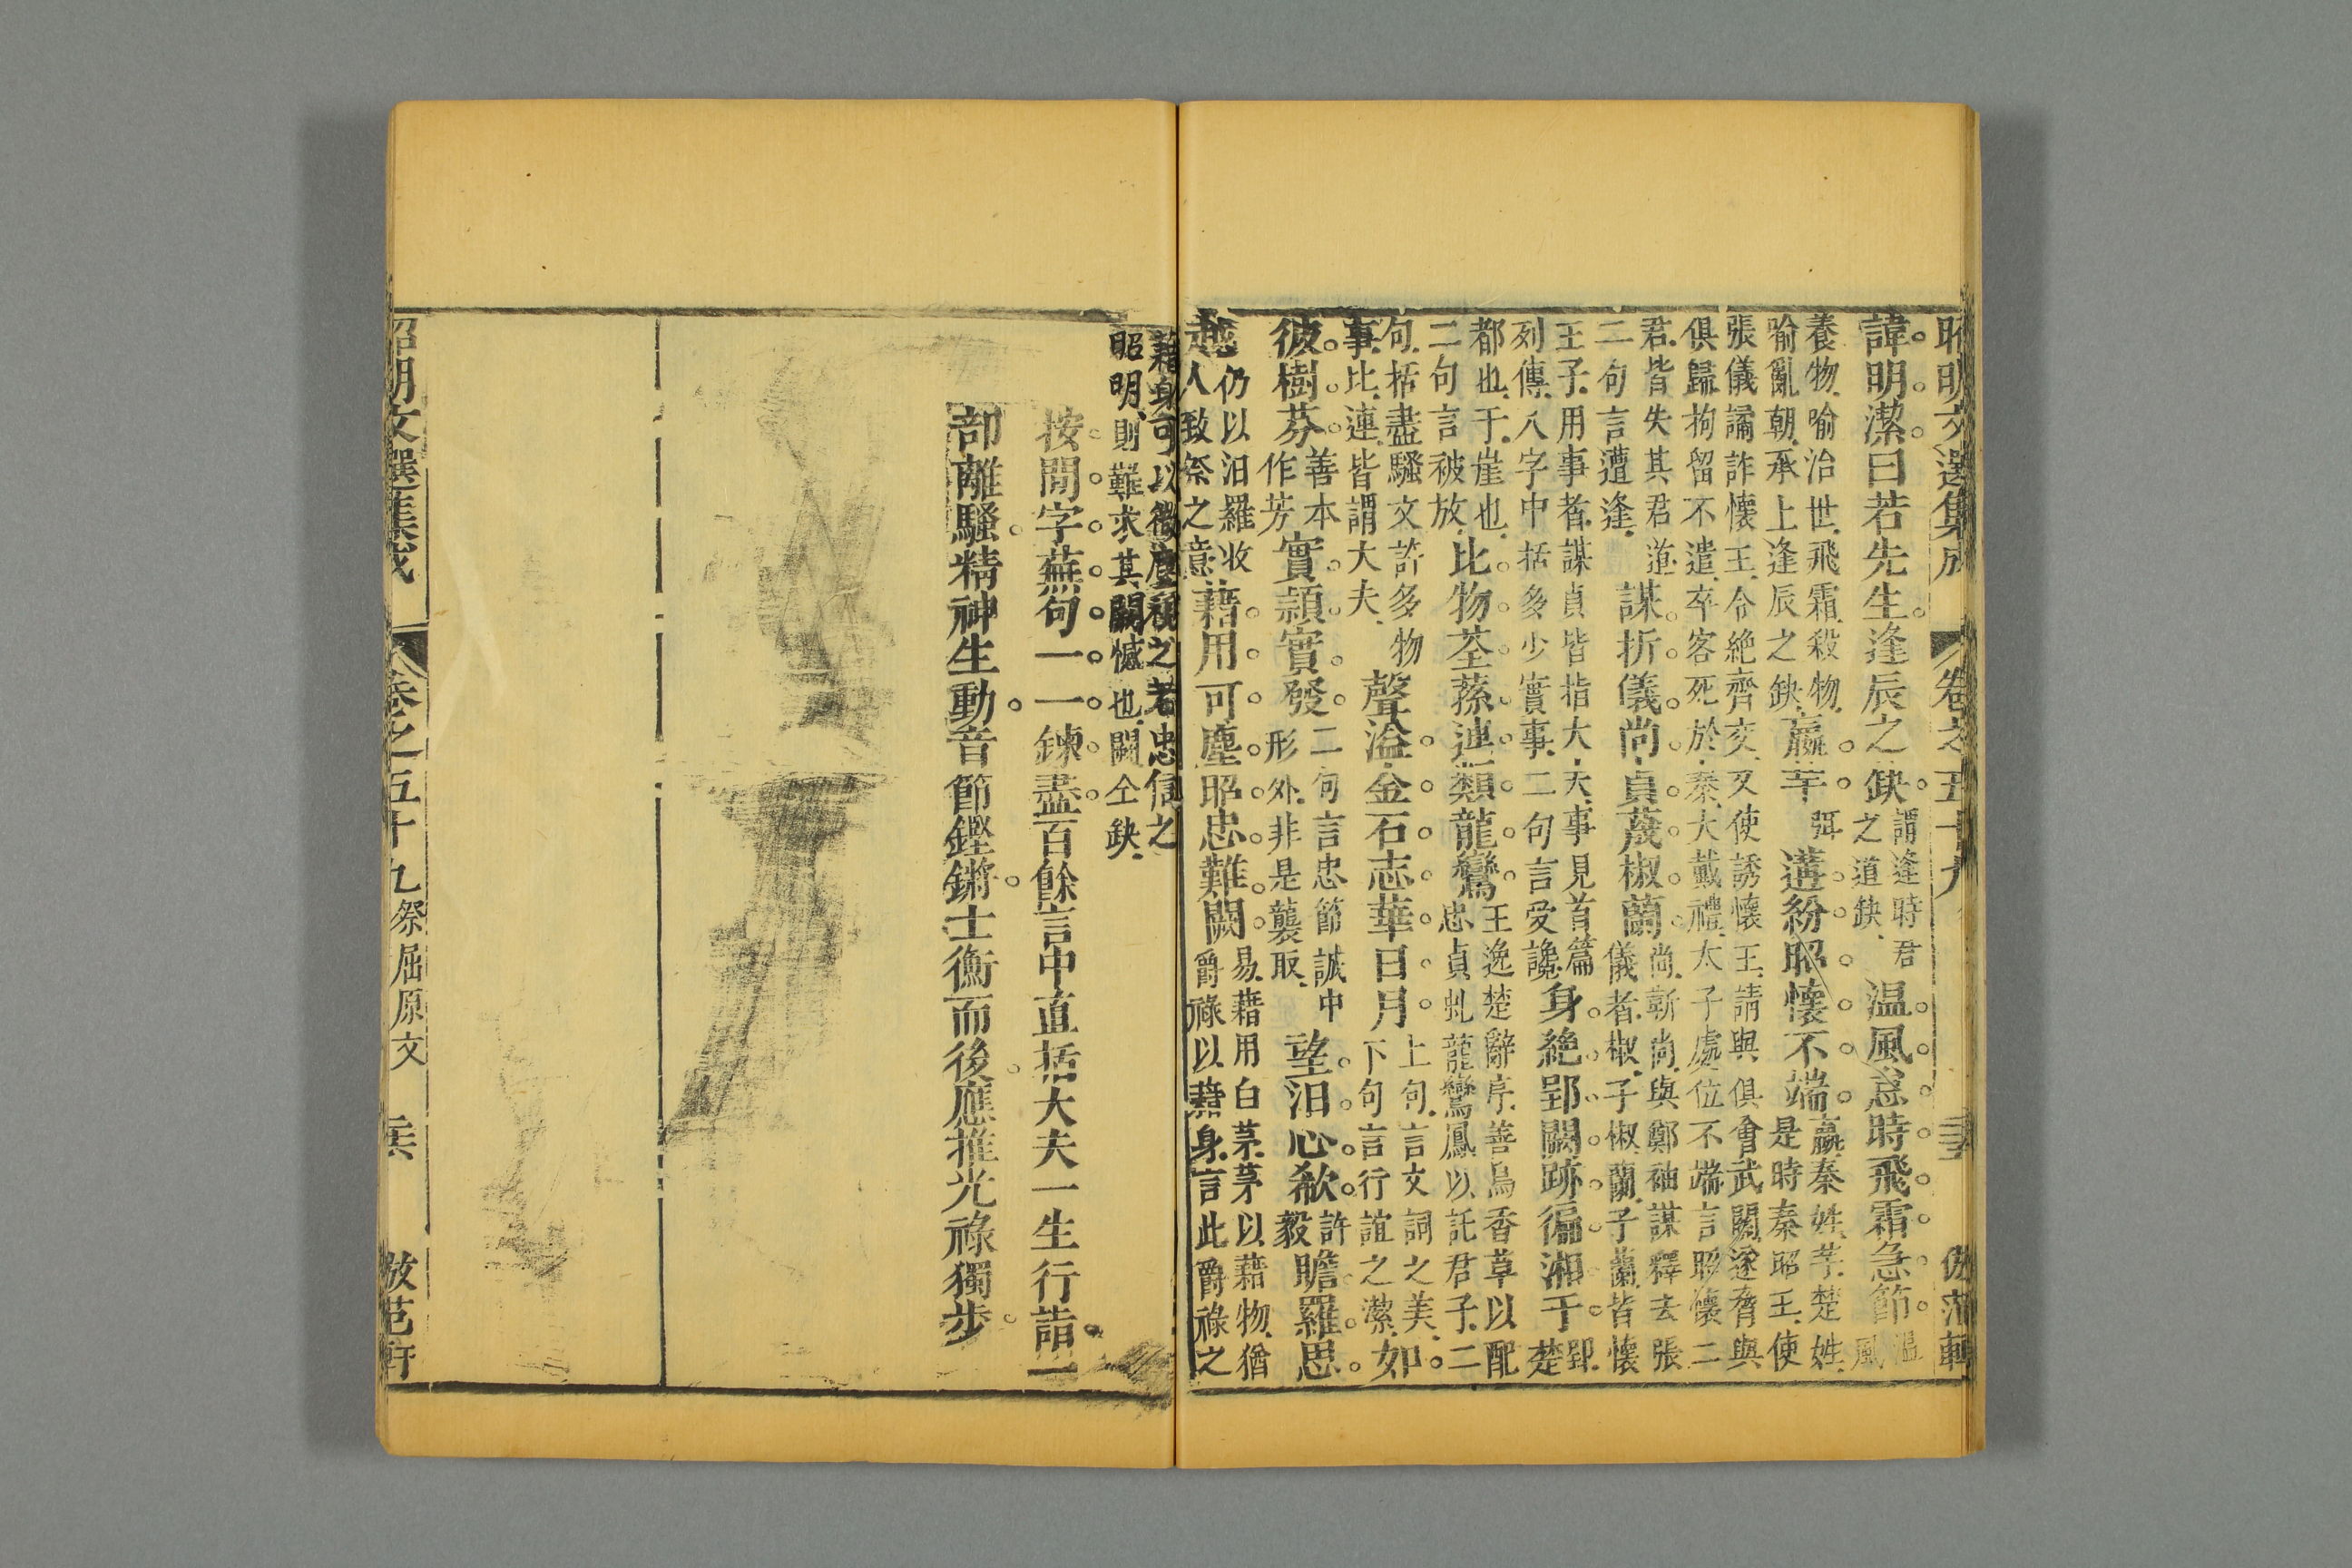 昭明文選集成 卷之五十九 倣范軒
諱明潔曰若先生逢辰之缺謂逢時君之道缺溫風怠時飛霜急節溫風
養物喻治世飛霜殺物喻亂朝承上逢辰之缺嬴芈弭遘紛昭懷不端嬴秦姓芈楚姓是時秦昭王使
張儀譎詐懷王令絕齊交又使誘懷王請與俱會武關遂脅與俱歸拘留不遣卒客死於秦大戴禮太子處位不端言昭懷二
君皆失其君道二句言遭逢謀折儀尚貞蔑椒蘭尚靳尚與鄭袖謀釋去張儀者椒子椒蘭子蘭皆懷
王子用事者謀貞皆指大夫事見首篇列傳八字中括多少實事二句言受讒身絕郢闕跡徧湘干郢楚
都也于崖也二句言被放比物荃蓀連類龍鸞王逸楚辭序善鳥香草以配忠貞虬龍鸞鳳以託君子二
句括盡騷文許多物事比連皆謂大夫聲溢金石志華日月上句言文詞之美下句言行誼之潔如
彼樹芬善本作芳實穎實發二句言忠節誠中形外非是襲取望汨心欷許毅瞻羅思
越仍以汨羅收人致祭之意藉用可塵昭忠難闕易藉用白茅茅以藉物猶爵祿以藉身言此爵祿之
藉身可以微塵視之若忠信之昭明則難求其闕憾也闕仝缺
按閒字蕪句一一鍊盡百餘言中直括大夫一生行誼一
部離騷精神生動音節鏗鏘士衡而後應推光祿獨步
昭明文選集成 卷之五十九祭屈原文 倣范軒